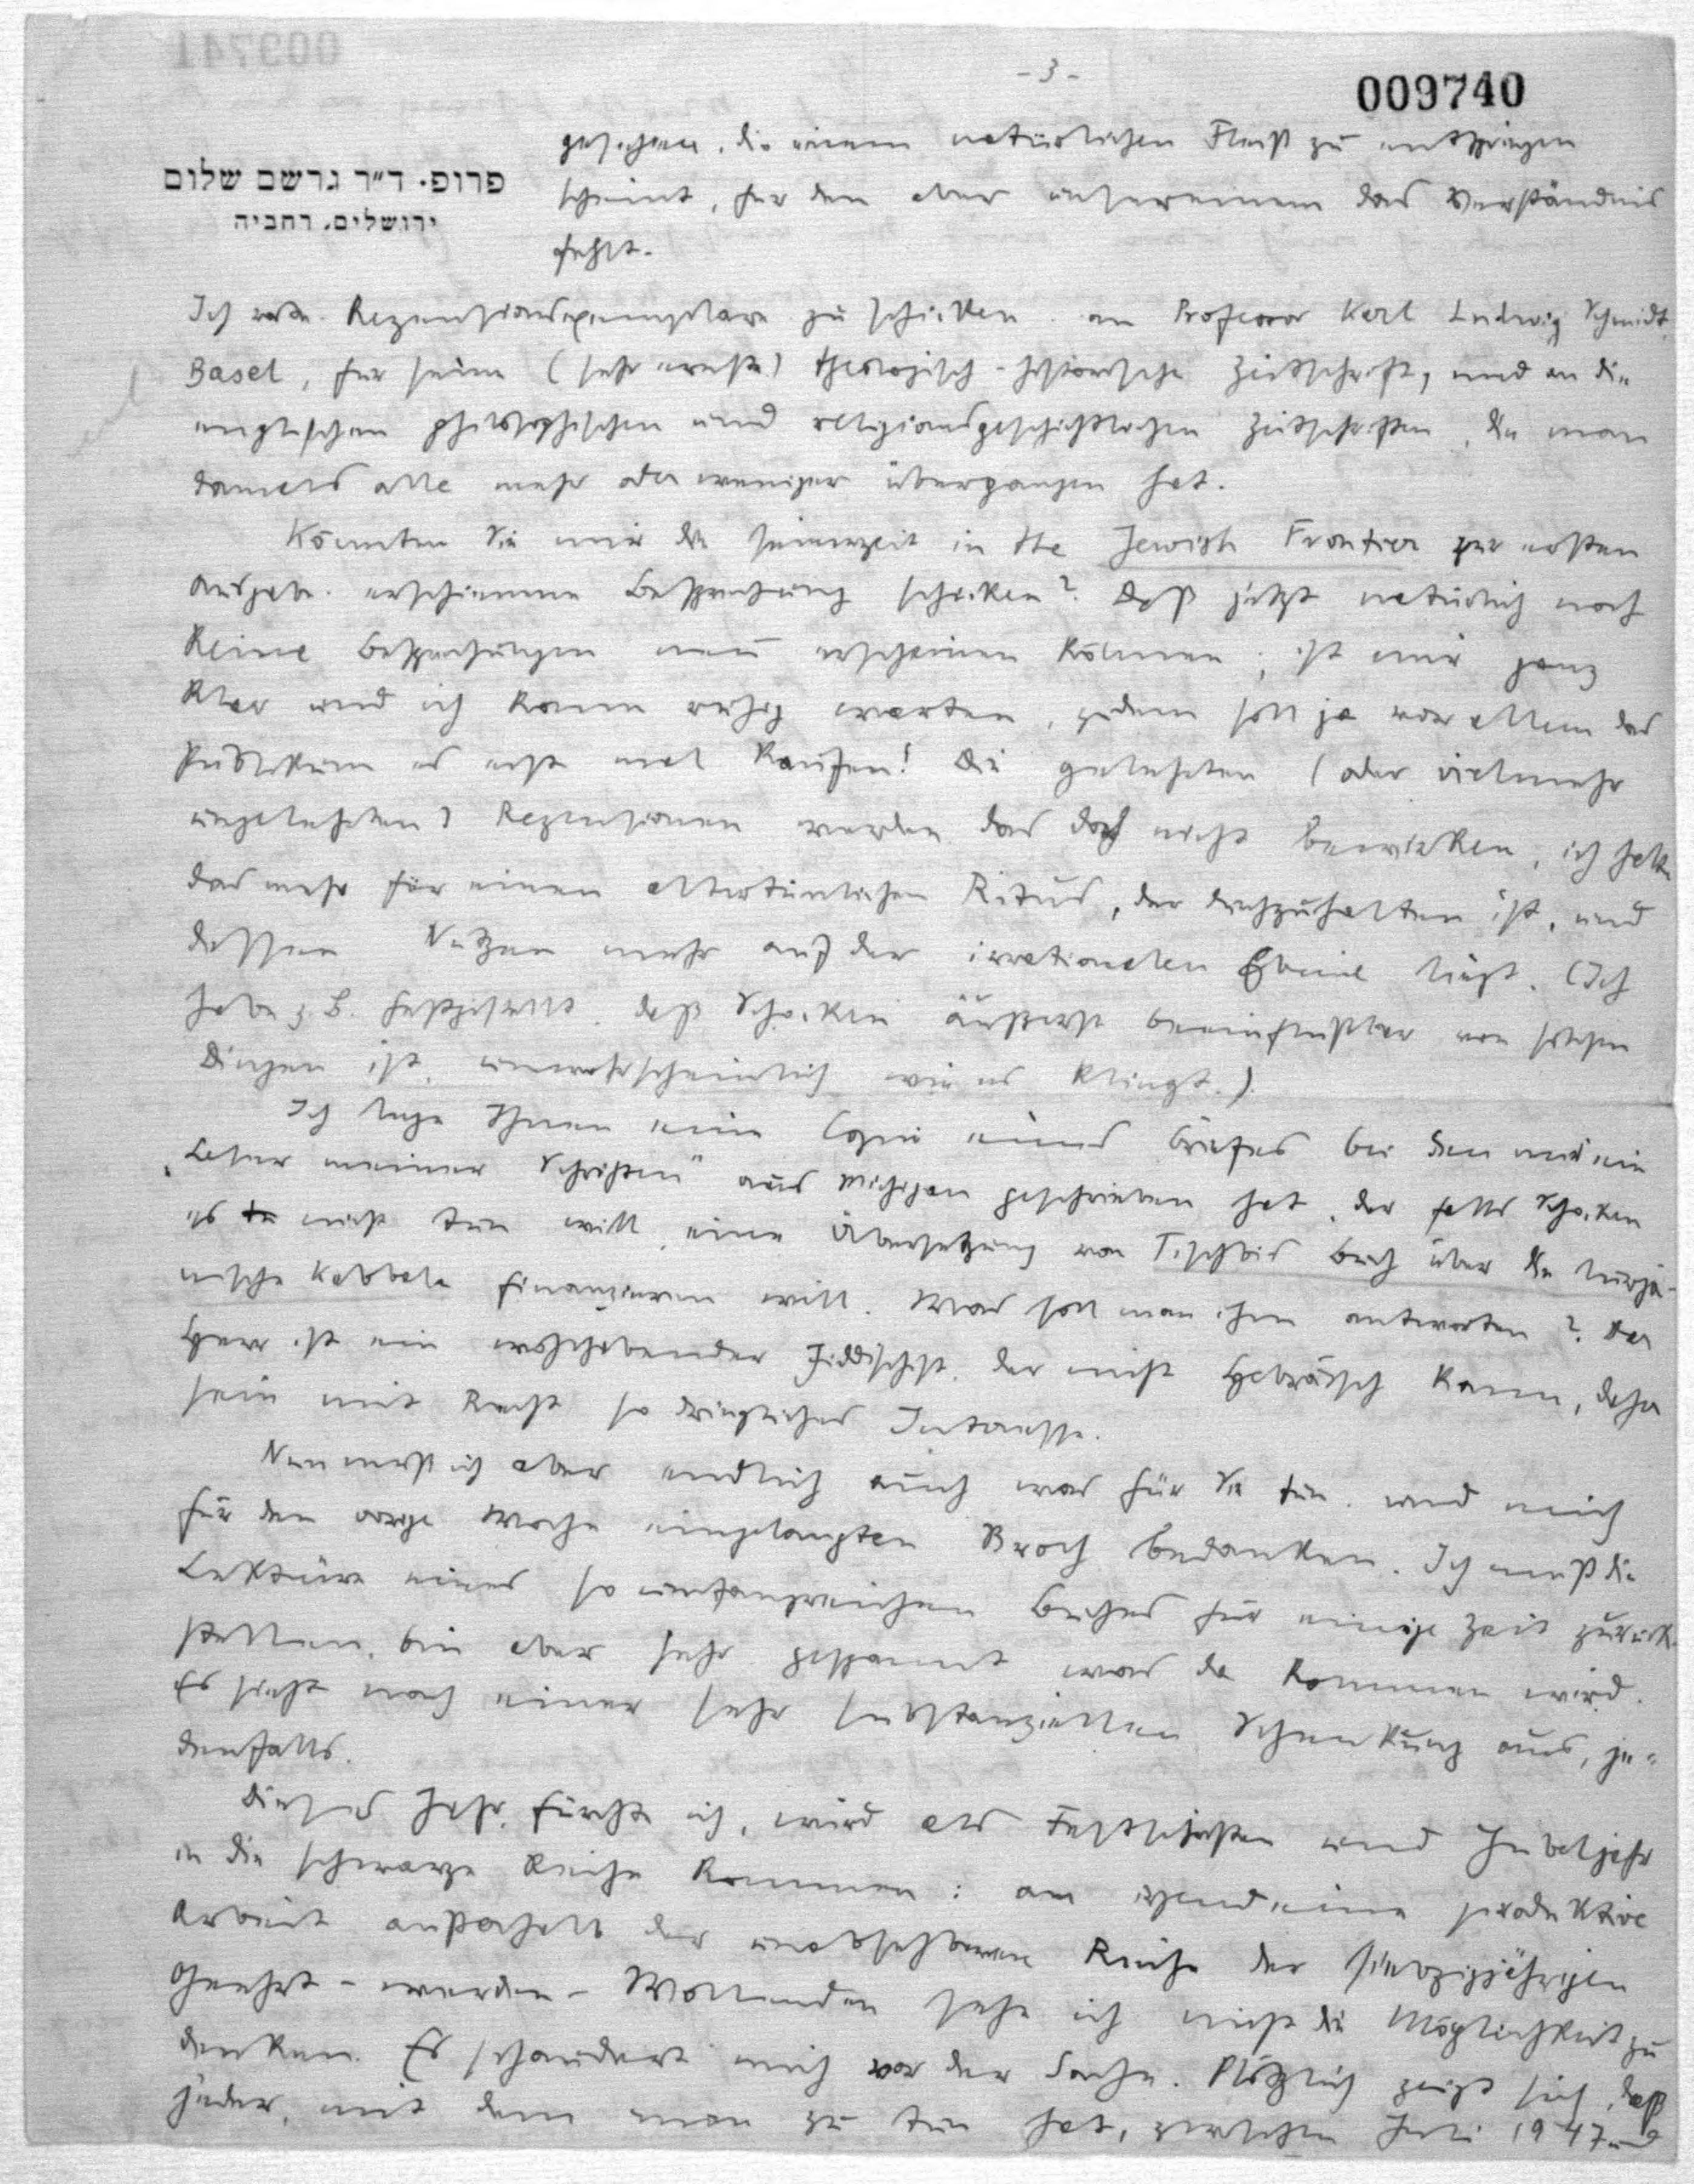 - 3 -
009740
פרופ. ד״ר גרשם שלום
ירושלים. רחביה
gesehen, die einem natürlichen Fleiß zu entspringen
scheint, für den aber unsereinem das Verständnis
fehlt.
Ich rate Rezensionsexemplare zu schicken an Professor Karl Ludwig Schmidt,
Basel, für seine (sehr ernste) theologisch-historische Zeitschrift, und an die
englischen philosophischen und religionsgeschichtlichen Zeitschriften, die man
damals alle mehr oder weniger übergangen hat.
Könnten Sie mir die seinerzeit in the Jewish Frontier zur ersten
Ausgabe erschienene Besprechung schicken? Daß jetzt natürlich noch
keine Besprechungen neu erscheinen können, ist mir ganz
klar und ich kann ruhig warten, zudem soll ja vor allem das
Publikum es erst mal kaufen! Die gelehrten (oder vielmehr
ungelehrten) Rezensionen werden das doch nicht bewirken, ich halte
das mehr für einen altertümlichen Ritus, der durchzuhalten ist, und
dessen Nutzen mehr auf der irrationalen Ebene liegt. (Ich
habe z.B. festgestellt, daß Schocken äußerst beeinflußbar von solchen
Dingen ist, unwahrscheinlich wie es klingt.)
Ich lege Ihnen eine Copie eines Briefes bei den mir ein
„Leser meiner Schriften" aus Michigan geschrieben hat, der falls Schocken
es nicht tun will, eine Übersetzung von Tischbis Buch über die lurja-
nische Kabbala finanzieren will. Was soll man ihm antworten? Der
Herr ist ein wohlhabender Jiddischist, der nicht Hebräisch kann, daher
sein mit Recht so dringliches Interesse.
Nun muß ich aber endlich auch was für Sie tun und mich
für den vorige Woche eingelangten Broch bedanken. Ich muß die
Lektüre eines so umfangreichen Buches für einige Zeit zurück-
stellen, bin aber sehr gespannt was da kommen wird.
Es sieht nach einer sehr substanziellen Schenkung aus, je-
denfalls.
Dieses Jahr, fürchte ich, wird als Festschriften und Jubeljahr
in die schwarze Reihe kommen: an irgendeine produktive
Arbeit außerhalb der unabsehbaren Reihe der siebzigjährigen
Geehrt-werden-Wollenden sehe ich nicht die Möglichkeit zu
denken. Es schaudert mich vor der Sache. Plötzlich zeigt sich, daß
jeder, mit dem man zu tun hat, zwischen Juli 1947 und